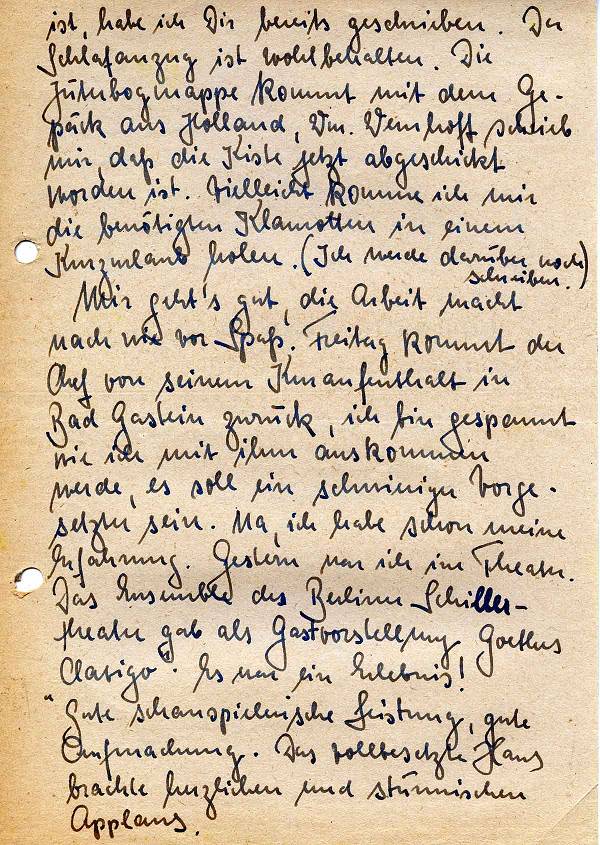 ist, habe ich Dir bereits geschrieben. Der
Schlafanzug ist wohlbehalten. Die
Jüterbogmappe kommt mit dem Ge-
päck aus Holland, Wm. Wemhoff schrieb
mir, daß die Kiste jetzt abgeschickt
worden ist. Vielleicht komme ich mir
die benötigten Klamotten in einem
Kurzurlaub holen. (Ich werde darüber noch
schreiben.)
Mir geht's gut, die Arbeit macht
nach wie vor Spaß. Freitag kommt der
Chef von seinem Kuraufenthalt in
Bad Gastein zurück, ich bin gespannt
wie ich mit ihm auskommen
werde, es soll ein schwieriger Vorge-
setzter sein. Na, ich habe schon meine
Erfahrung. Gestern war ich im Theater.
Das Ensemble des Berliner Schiller-
theater gab als Gastvorstellung Goethes
„Clavigo". Es war ein Erlebnis!
Gute schauspielerische Leistung, gute
Aufmachung. Das vollbesetzte Haus
brachte herzlichen und stürmischen
Applaus.